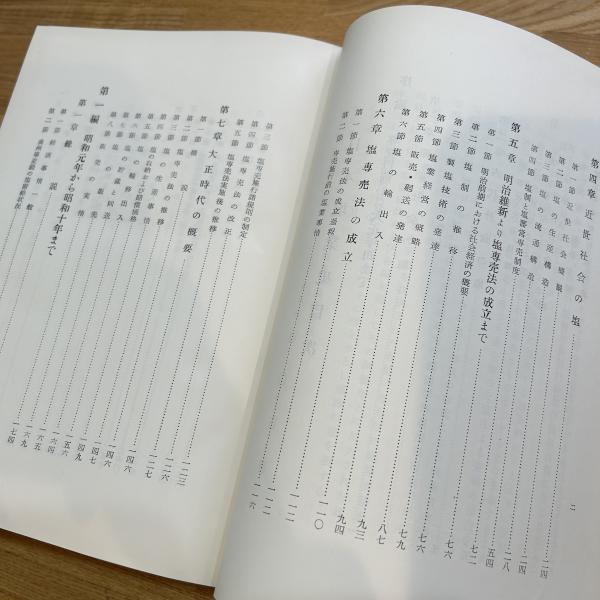 第四章 近世社会の塩
第一節 近世社会概観
第二節 塩の生産構造
第三節 塩の流通構造 二四
第四節 塩制と塩藩営専売制度 二四
第五章 明治維新より塩専売法の成立まで
第一節 明治前期における社会経済の概要
第二節 塩制の推移 七二
第三節 製塩技術の発達 七六
第四節 塩業経営の概略
第五節 販売・輸送の発達 七九
第六節 塩の輸出入 八七
第六章 塩専売法の成立 九三
第一節 塩専売法の成立過程 九四
第二節 専売施行前の塩業事情 一一〇
第三節 塩専売施行諸規則の制定
第四節 塩専売法の改正
第五節 塩専売法実施後の推移 一一六
第七章 大正時代の概要
第一節 概説 一二三
第二節 塩専売法の推移 一二六
第三節 塩の生産事情 一二七
第五節 塩の収納および賠償価格
第六節 塩の輸移出入 一四六
第七節 塩の貯蔵と回送 一四六
第八節 販売の実際 一四七
第一編 昭和元年から昭和十年まで
第一章 総説 一五六
第一節 経済事情一般 一六四
第二節 一六五